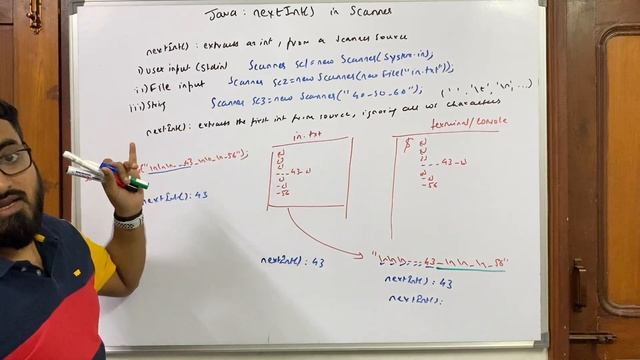 Java : nextInt() in Scanner
nextInt() : extracts an int, from a scanner source
i) User input (Stdin) Scanner sc1 = new Scanner(System.in);
ii) File input Scanner sc2 = new Scanner(new File("in.txt"));
iii) String Scanner sc3 = new Scanner("40-50-60");
(' ', '\t', '\n', ...)
nextInt() : extracts the first int from source, ignoring all ws characters
("\n\n\n---43-\n\n-\n-56");
nextInt() : 43
in.txt
---43-↵
-↵
-56
nextInt() : 43
terminal/console
$ ↵
---43-↵
-↵
-56
"\n\n\n---43-\n\n-\n-56"
nextInt() : 43
nextInt() :